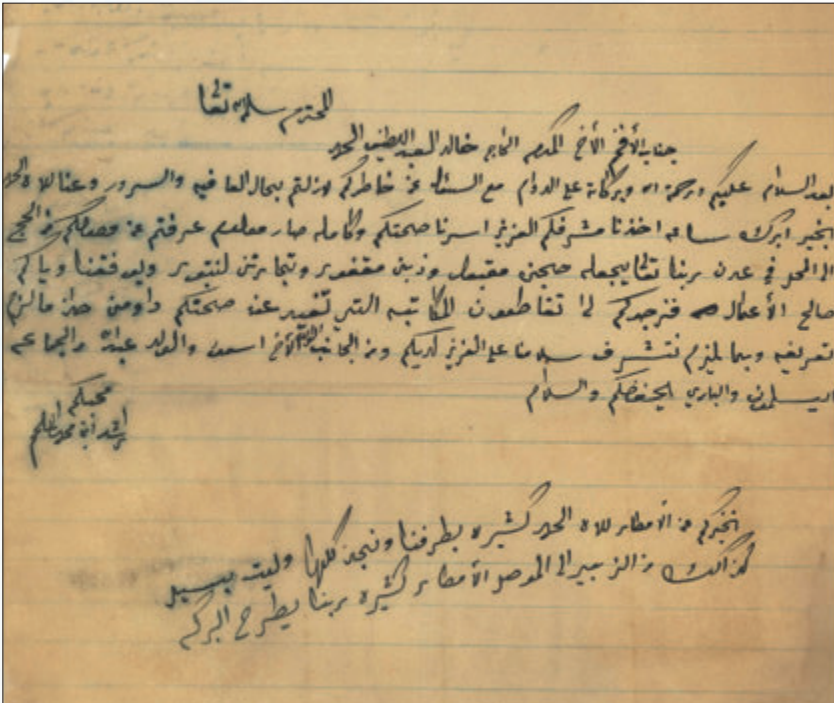 المحترم سلمه تعالى
جناب الأفخم الأخ المكرم الحاج خالد العبد اللطيف الحمد
بعد السلام عليكم ورحمة الله وبركاته على الدوام مع السئال عن خاطركم لازلتم بحال العافيه والسرور وعنا لله الحمد
بخير ابرك ساعه اخذنا مشرفكم العزيز اسرنا صحتكم وكامله صار معلوم عرفتم عن وصولكم من الحج
الى المحل في عدن ربنا تعالى يجعله حجن مقبول وذبن مغفور وتجارتن لنتبور ويوفقنا وياكم
صالح الأعمال فنرجوكم لا تقاطعون المكاتبه التي تفيد عن صحتكم دا ومن مالزم
تعريفه وبما يلزم نتشرف سلامنا على العزيز لديكم ومن الجانب الأخ والولد عبدالله والجماعه
يسلمون والباري يحفظكم والسلام
محبكم
راشد
نخبركم عن الأمطار لله الحمد كثيره بطرفنا ونجد كلها وليت بسيل
كذالك من الزبير الى الموصل الأمطار كثيره ربنا يطرح البركه